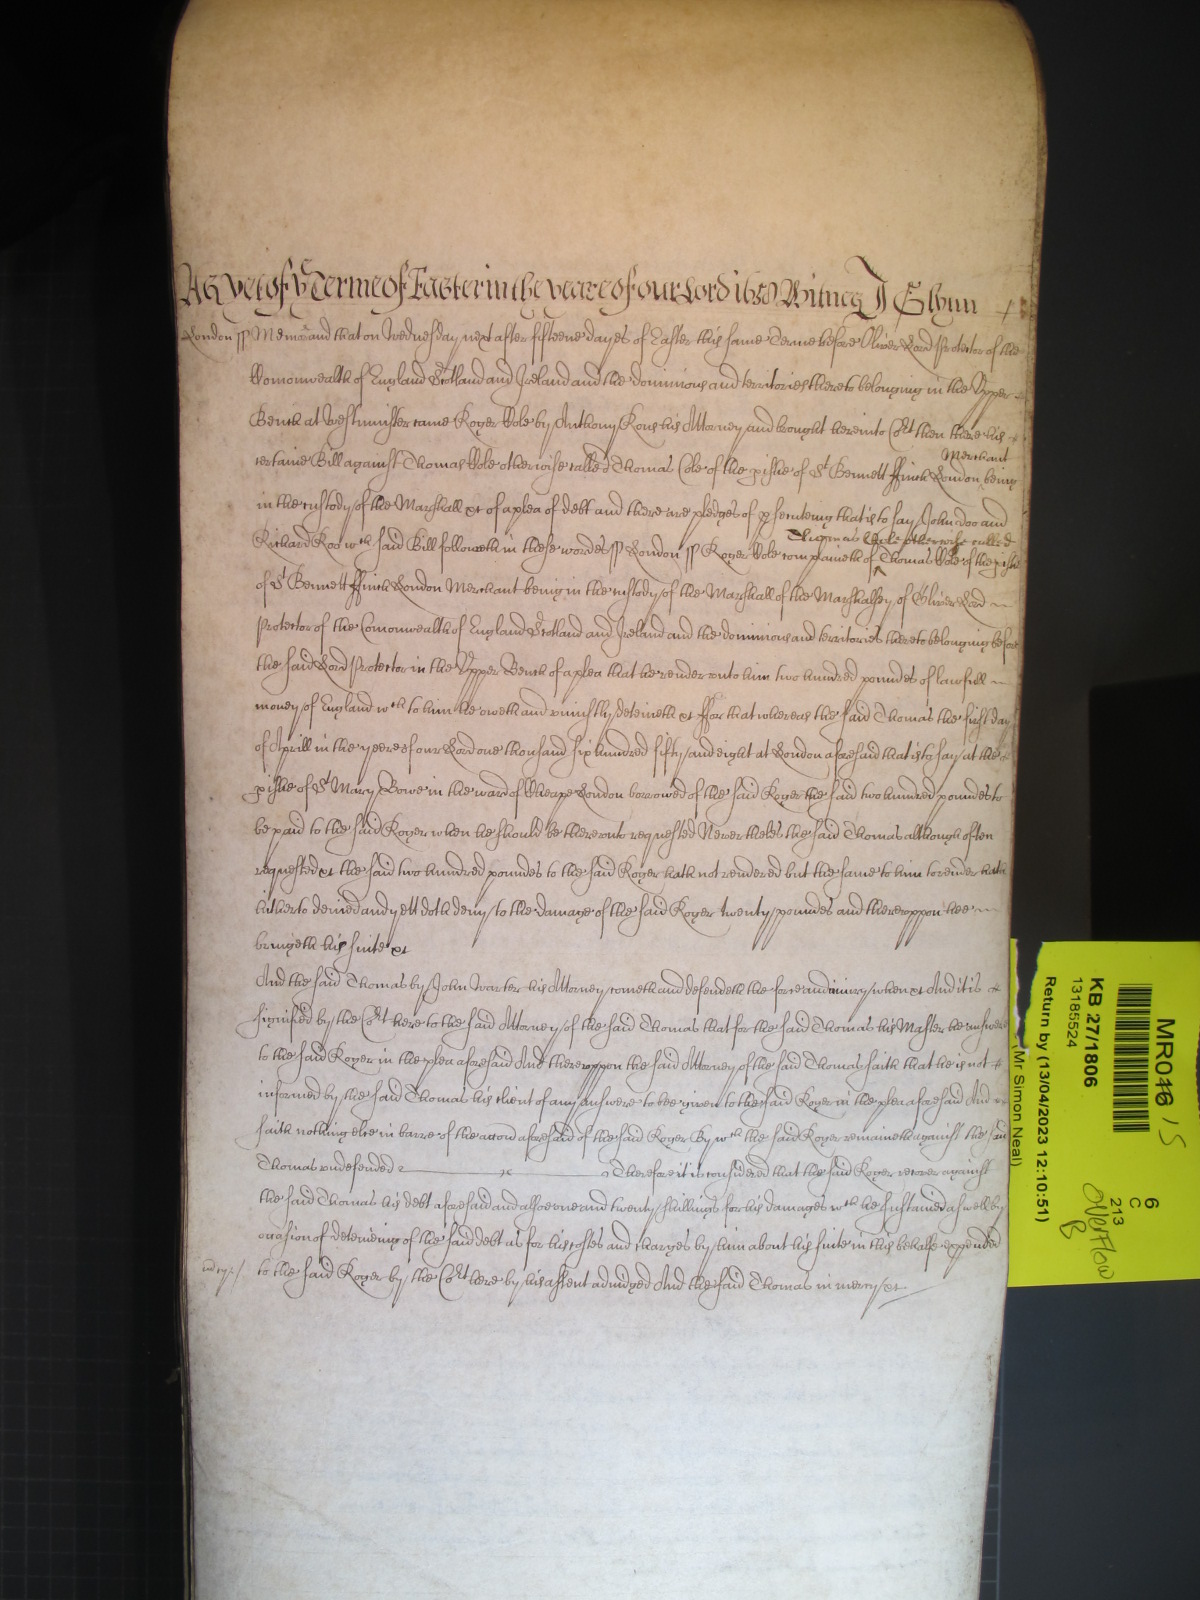 As yet of ye Terme of Easter in the yeare of our Lord 1658 Witnes J Glynn
London ss Memorand that on Wednesday next after fifteene dayes of Easter this same Terme before Oliver Lord Protector of the
Comonwealth of England Scotland and Ireland and the dominions and territories thereto belonging in the Upper
Bench at Westminster came Roger Cole by Anthony Rous his Attorney and brought here into Cort then there his
Merchant
certaine Bill against Thomas Cole otherwise called Thomas Cole of the pishe of St Bennett ffinck London being
in the custody of the Marshall &c of a plea of debt and there are pledges of psecuting that is to say John Doo and
Thomas Cole otherwise called
Richard Roo wch said Bill followeth in these wordes ss London ss Roger Cole complaineth of ^ Thomas Cole of the pishe
of St Bennett ffinck London Merchant being in the custody of the Marshall of the Marshalsey of Oliver Lord
Protector of the Comonwealth of England Scotland and Ireland and the dominions and territories thereto belonging before
the said Lord Protector in the Upper Bench of a plea that he render unto him two hundred poundes of lawfull
money of England wch to him he oweth and uniustly deteineth &c ffor that whereas the said Thomas the first day
of Aprill in the yeere of our Lord one thousand six hundred fifty and eight at London aforesaid that is to say at the
pishe of St Mary Bowe in the ward of Cheape London borrowed of the said Roger the said two hundred poundes to
be paid to the said Roger when he should be thereunto requested Neverthelesse the said Thomas although often
requested &c the said two hundred poundes to the said Roger hath not rendered but the same to him to render hath
hitherto denied and yett doth deny to the damage of the said Roger twenty poundes and thereuppon hee
bringeth his suite &c
And the said Thomas by John Warter his Attorney cometh and defendeth the force and iniury when &c And it is
signified by the Cort here to the said Attorney of the said Thomas that for the said Thomas his Master he answere
to the said Roger in the plea aforesaid And thereuppon the said Attorney of the said Thomas saith that he is not
informed by the said Thomas his client of any answere to bee given to the said Roger in the plea aforesaid And
saith nothing else in barre of the accon aforesaid of the said Roger By wch the said Roger remaineth against the said
Thomas undefended Therefore it is considered that the said Roger recover against
the said Thomas his debt aforesaid and alsoe one and twenty shillings for his damages wch he sustained aswell by
occasion of deteineing of the said debt as for his costes and charges by him about his suite in this behalfe expended
mercy to the said Roger by the Cort here by his assent adiudged And the said Thomas in mercy &c
MR016 15
KB 27/1806
13185524
Return by (13/04/2023 12:10:51)
(Mr Simon Neal)
6
C
213
Overflow
B